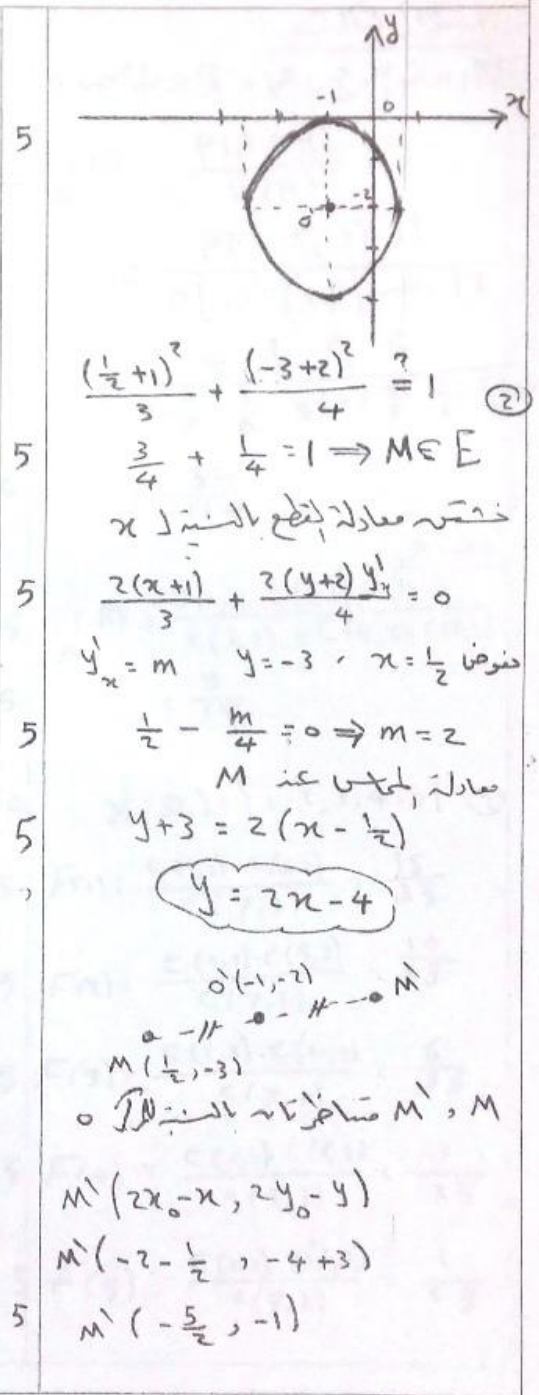 y
-1 0 x
5
-2
o'
(1/2 + 1)²/3 + (-3+2)²/4 ≟ 1 (2)
5 3/4 + 1/4 = 1 ⇒ M ∈ E
نشتق معادلة القطع بالنسبة لـ x
5 2(x+1)/3 + 2(y+2)y'ₓ/4 = 0
نعوض x = 1/2 ، y = -3 y'ₓ = m
5 1/2 - m/4 = 0 ⇒ m = 2
معادلة المماس عند M
5 y+3 = 2(x - 1/2)
y = 2x - 4
o'(-1,-2) M'
M(1/2, -3)
M , M' متناظرتان بالنسبة o
M'(2x₀-x, 2y₀-y)
M'(-2-1/2, -4+3)
5 M'(-5/2, -1)